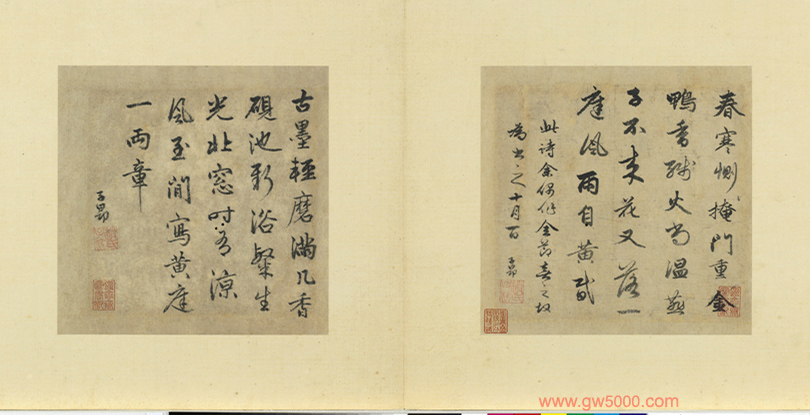 春寒惻〻掩門重金
鴨香殘火尚温燕
子不來花又落一
庭風雨自黄昏
此詩余偶作喜之故
為書之十月
子昂
古墨輕磨滿几香
硯池新浴粲生
光北窓時有涼
風至閒寫黄庭
一兩章
子昂
www.gw5000.com